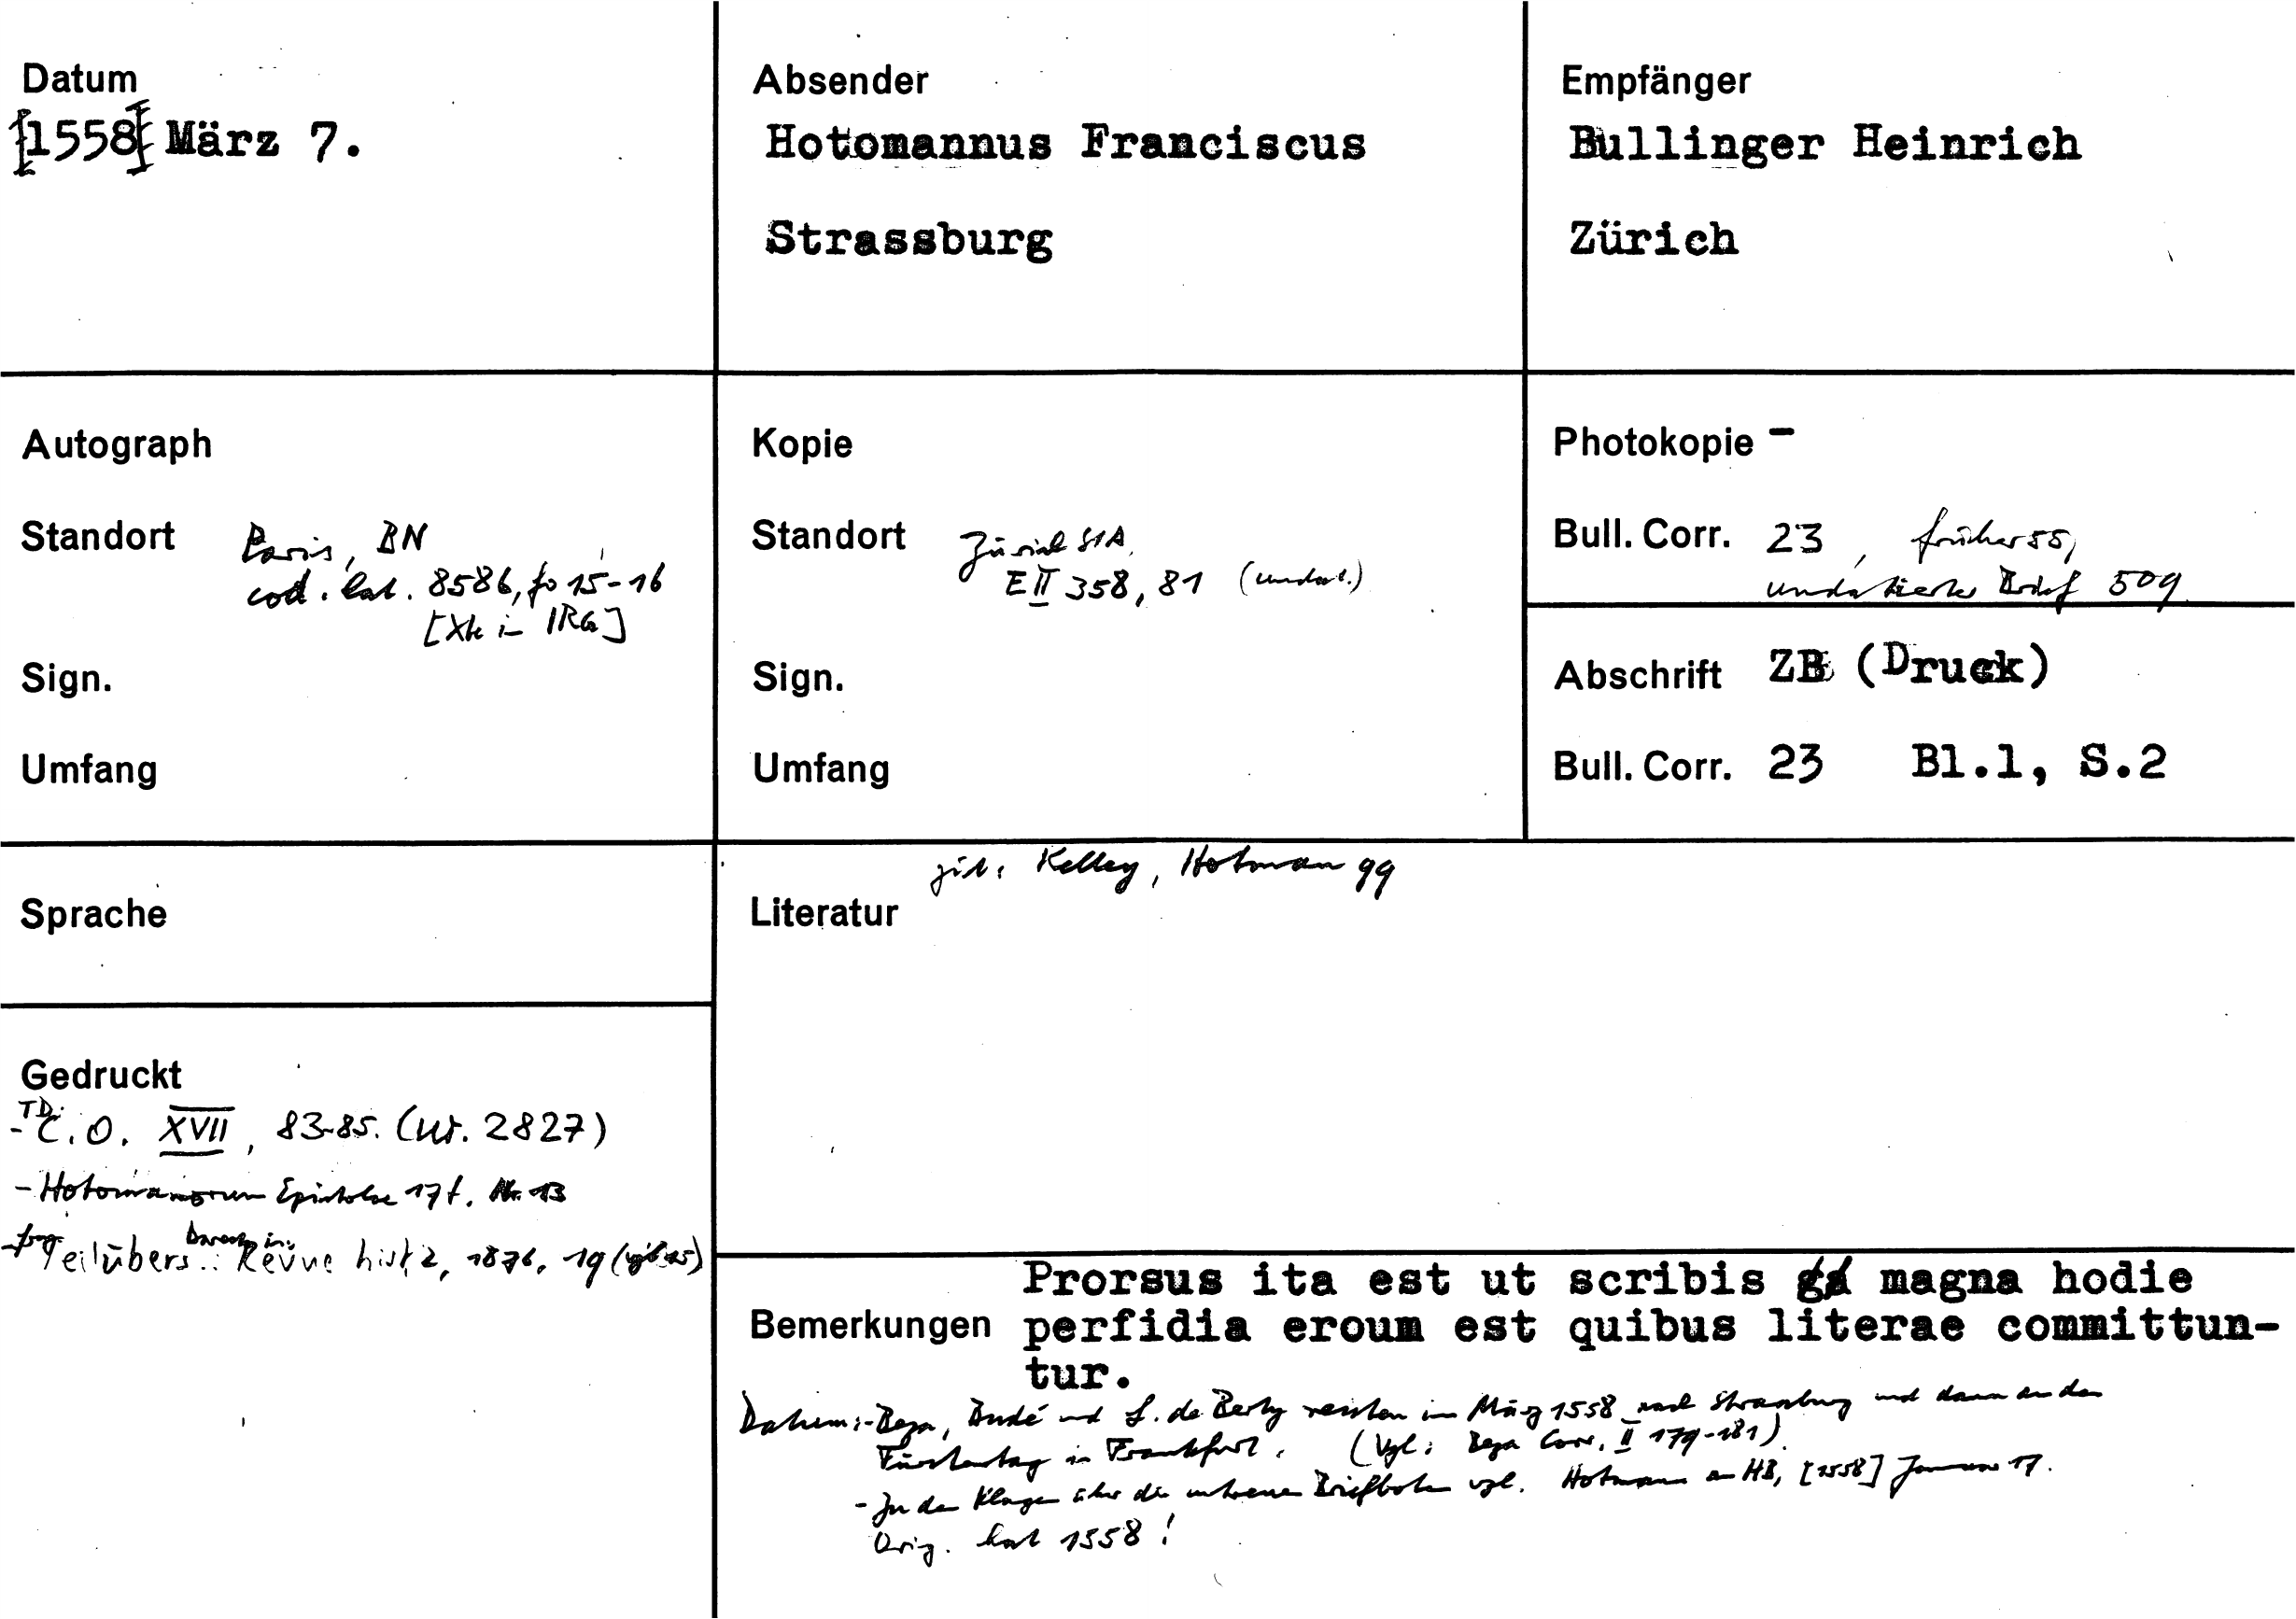 Datum
[1558] März 7.
Absender
Hotomannus Franciscus
Strassburg
Empfänger
Bullinger Heinrich
Zürich
Autograph
Standort Paris, BN
cod. lat. 8586, fo 15-16
[Xk in IRG]
Sign.
Umfang
Kopie
Standort Zürich StA,
E II 358, 81 (undat.)
Sign.
Umfang
Photokopie -
Bull. Corr. 23, früher 55,
undatierter Brief 509
Abschrift ZB (Druck)
Bull. Corr. 23 Bl.1, S.2
Sprache
zit. Kelley, Hotman 99
Literatur
Gedruckt
TD.
- C.O. XVII, 83-85. (Nr. 2827)
- Hotomanorum Epistolae 17f. Nr. 13
Teilübers.: Revue hist, 2, 1876, 19
Prorsus ita est ut scribis magna hodie
Bemerkungen perfidia eroum est quibus literae committun-
tur.
Datum:- Beza, Budé und reisten im März 1558 nach Strassburg und dann an den
Fürstentag in Frankfurt. (Vgl: Beza Corr. II 179-181).
- Zu den Klagen über die untreuen Briefboten vgl. Hotman an HB, [1558] Januar 17.
Orig. hat 1558!